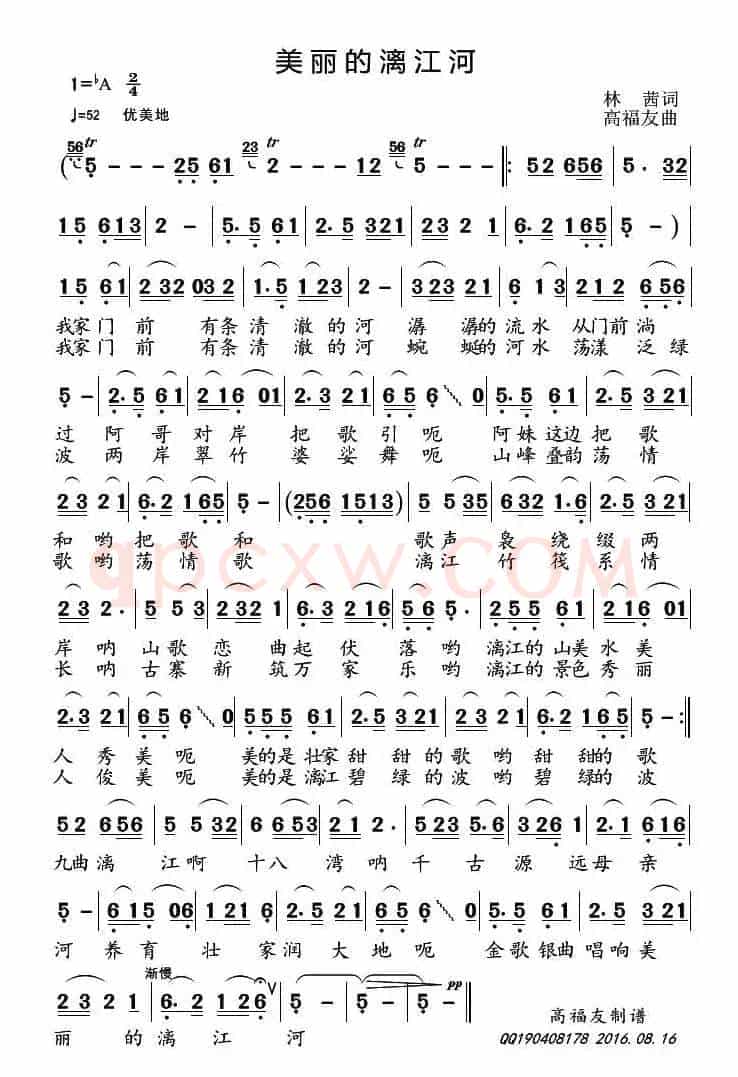 美丽的漓江河
1=♭A 2/4
♩=52 优美地
林 茜词
高福友曲
56 tr 23 tr 56 tr
(5 - - - 25 61 2 - - - 12 5 - - - ‖: 52 656 | 5. 32
15 613 | 2 - | 5.5 61 | 2.5 321 | 23 2 1 | 6.2 165 | 5 - )
15 61 | 2 32 03 2 | 1.5 1 23 | 2 - | 323 21 | 6 1 3 | 21 2 6 56
我家门前 有条清澈的河 潺潺的流水从门前淌
我家门前 有条清澈的河 蜿蜒的河水荡漾泛绿
5 - | 2.5 61 | 2 16 01 | 2.3 21 | 65 6 0 | 5.5 61 | 2.5 3 21
过阿哥对岸 把歌引呃 阿妹这边把歌
波两岸翠竹 婆娑舞呃 山峰叠韵荡情
23 21 | 6.2 165 | 5 - | (256 1513) | 5 5 35 | 6 32 1.6 | 2.5 3 21
和哟把歌和 歌声袅绕缀两
歌哟荡情歌 漓江竹筏系情
qpcxw.com
23 2. | 5 5 3 | 2 32 1 | 6.3 2 16 | 56 5. | 2 5 5 61 | 2 16 01
岸呐山歌恋曲起伏落哟漓江的山美水美
长呐古寨新筑万家乐哟漓江的景色秀丽
2.3 21 | 65 6 0 | 555 61 | 2.5 321 | 23 21 | 6.2 165 | 5 - :‖
人秀美呃 美的是壮家甜甜的歌哟甜甜的歌
人俊美呃 美的是漓江碧绿的波哟碧绿的波
52 656 | 5 5 32 | 6 6 53 | 21 2. | 5 23 5.6 | 3 26 1 | 2.3 1 6
九曲漓 江啊 十八湾呐千古源远母亲
5 - | 6 15 06 | 1 21 6 | 2.5 321 | 65 6 - | 5.5 61 | 2.5 321
河养育壮家润大地呃 金歌银曲唱响美
渐慢
23 21 | 6.2 1 2 6 ∨ | 5 - | 5 - | 5 - ‖ pp
丽的漓江河
高福友制谱
QQ190408178 2016.08.16